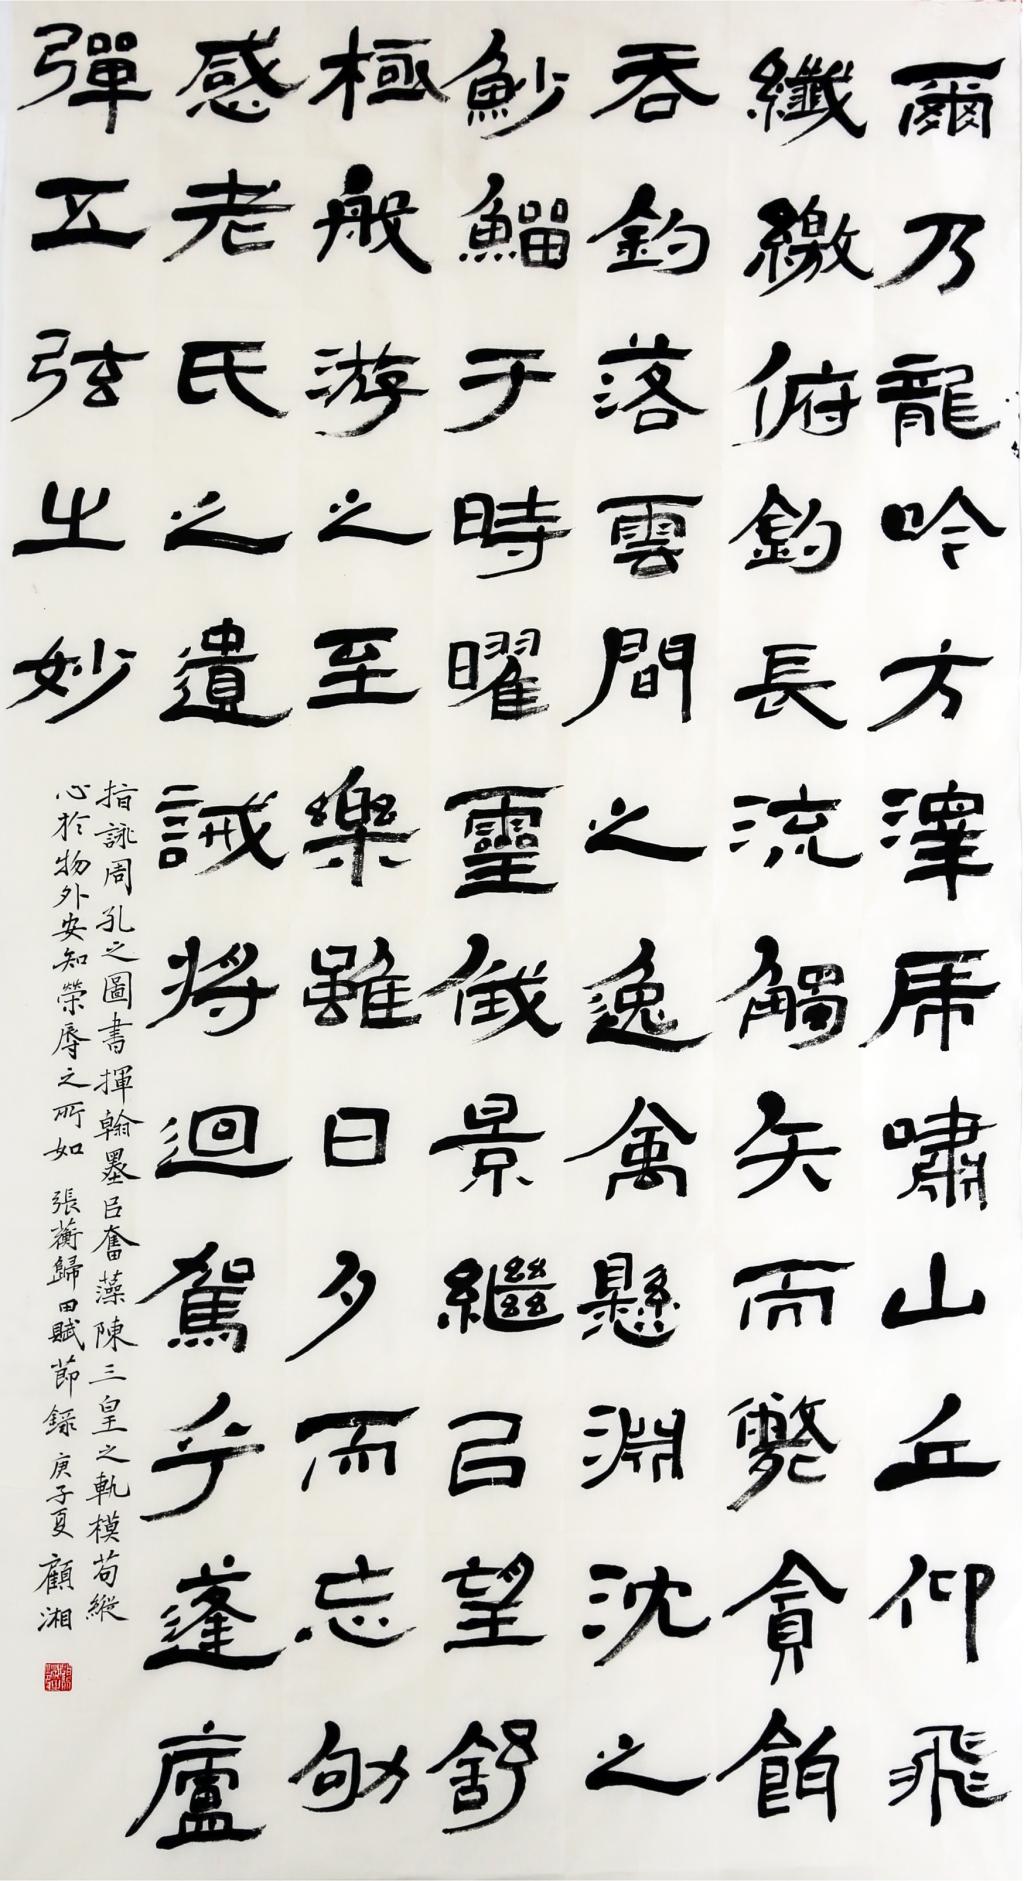 爾乃龍吟方澤虎嘯山丘仰飛
纖繳俯釣長流觸矢而斃貪餌
吞鈞落雲間之逸禽懸淵沈之
魦鰡于時曜靈俄景繼㠯望舒
極般游之至樂雖日夕而忘劬
感老氏之遺誡將迴駕乎蓬廬
彈五弦之妙
指詠周孔之圖書揮翰墨㠯奮藻陳三皇之軌模苟縱
心於物外安知榮辱之所如 張蘅歸田賦節錄 庚子夏 顧湘